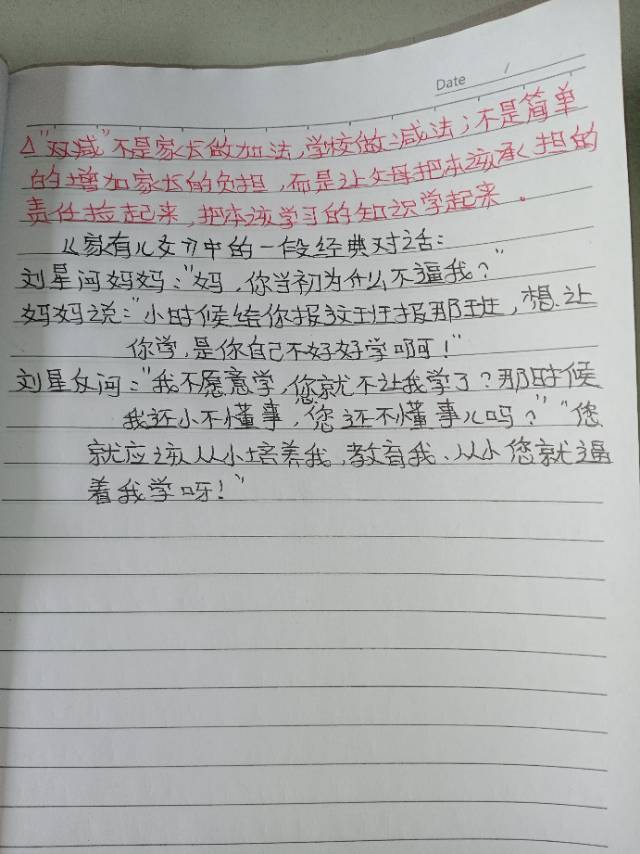 Date /
△"双减"不是家长做加法,学校做减法;不是简单
的增加家长的负担,而是让父母把本该承担的
责任捡起来,把本该学习的知识学起来。
《家有儿女》中的一段经典对话:
刘星问妈妈:"妈,你当初为什么不逼我?"
妈妈说:"小时候给你报这班报那班,想让
你学,是你自己不好好学啊!"
刘星反问:"我不愿意学,您就不让我学了?那时候
我还小不懂事,您还不懂事儿吗?""您
就应该从小培养我,教育我、从小您就逼
着我学呀!"